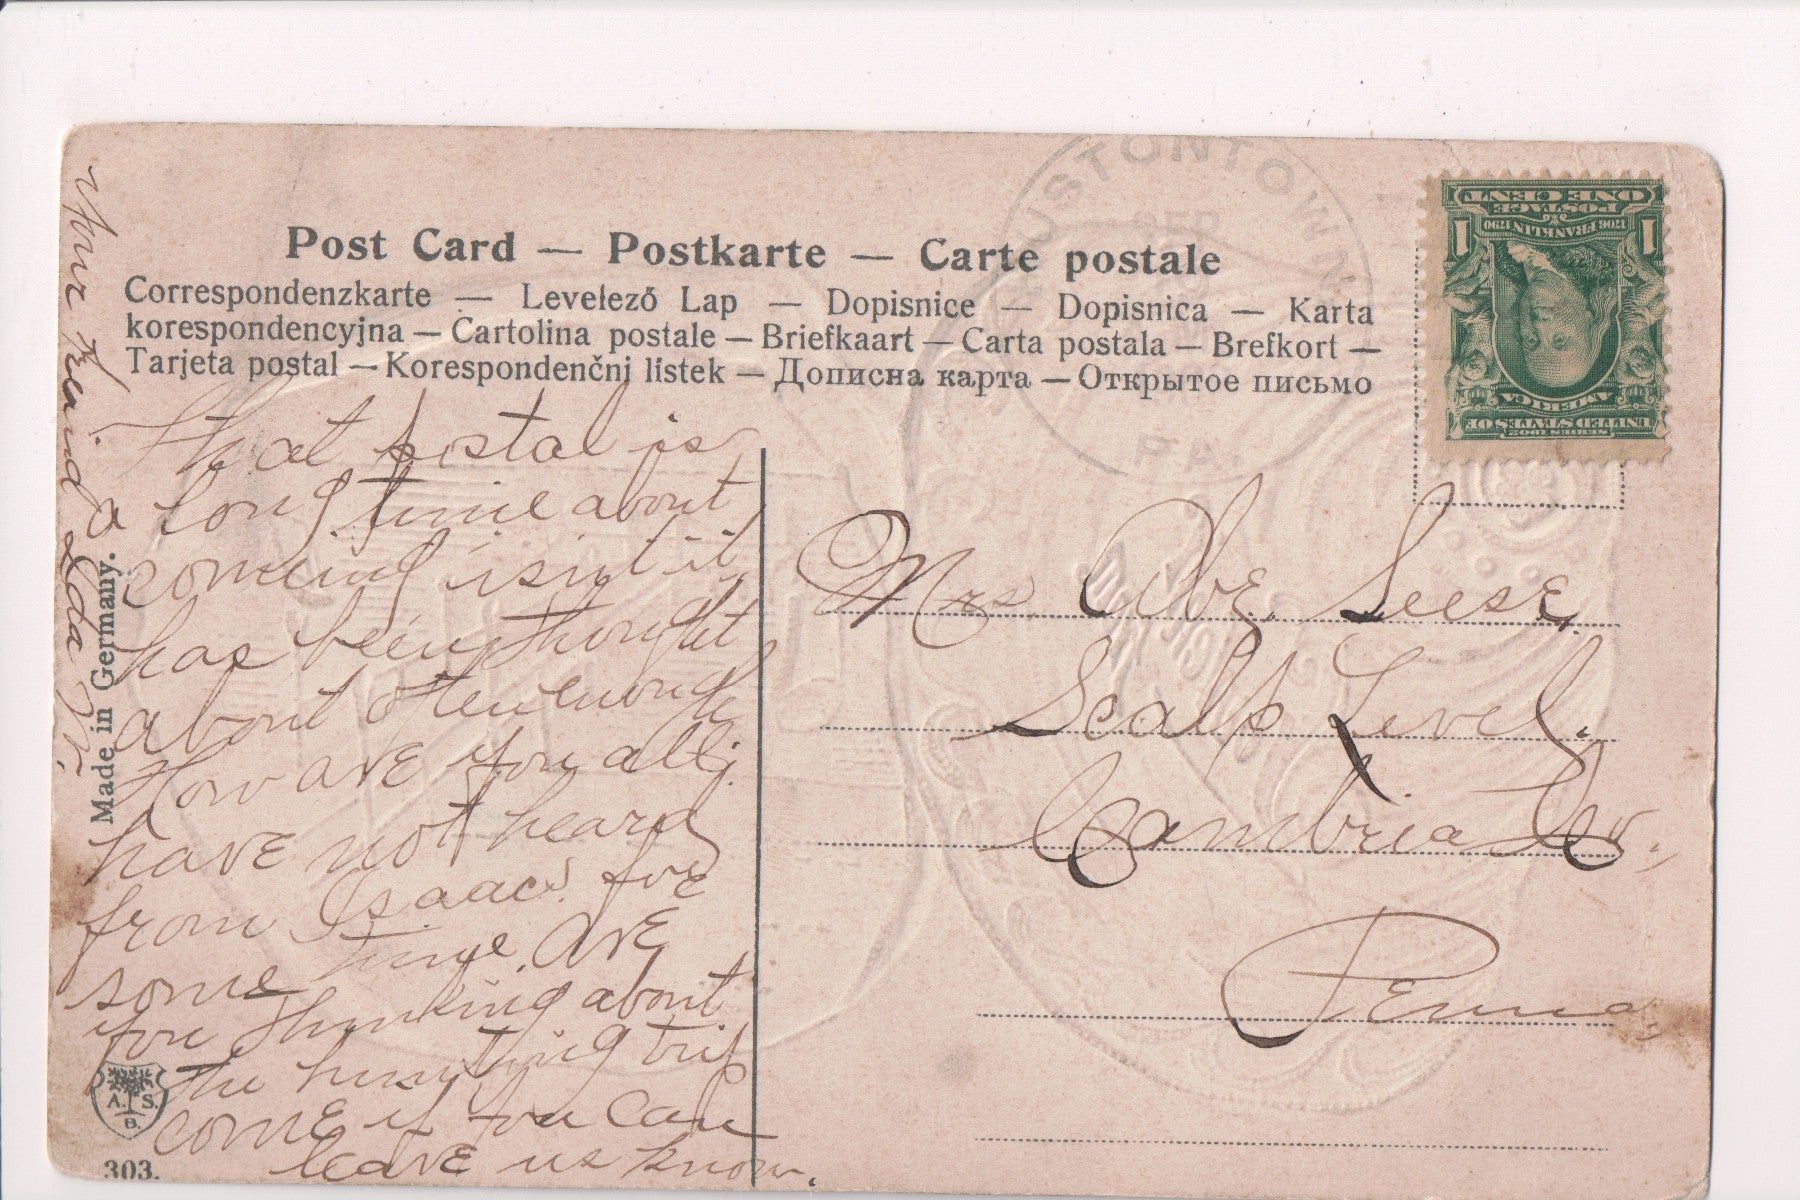 Post Card — Postkarte — Carte postale
Correspondenzkarte — Levelező Lap — Dopisnice — Dopisnica — Karta
korespondencyjna — Cartolina postale — Briefkaart — Carta postala — Brefkort —
Tarjeta postal — Korespondenčni lístek — Дописна карта — Открытое письмо
HUSTONTOWN
SEP
PA.
UNITED STATES OF
AMERICA
SERIES 1902
1706 FRANKLIN 1790
POSTAGE
ONE CENT
1 1
That postal is
a long time about
coming isnt it
has been thought
about often enough
How are you all
have not heard
from Isaacs for
some time. Are
you thinking about
the hunting trip
come if you can
leave us know.
Your Friend Ida
Made in Germany.
A. S.
B.
303.
Mrs Abe. Seese,
Scalp Level.
Cambria Co.,
Penna.